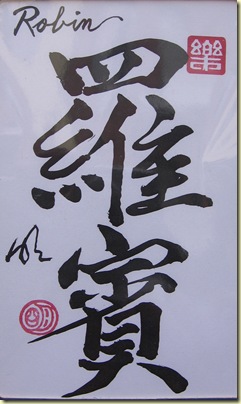 Robin
羅
賓